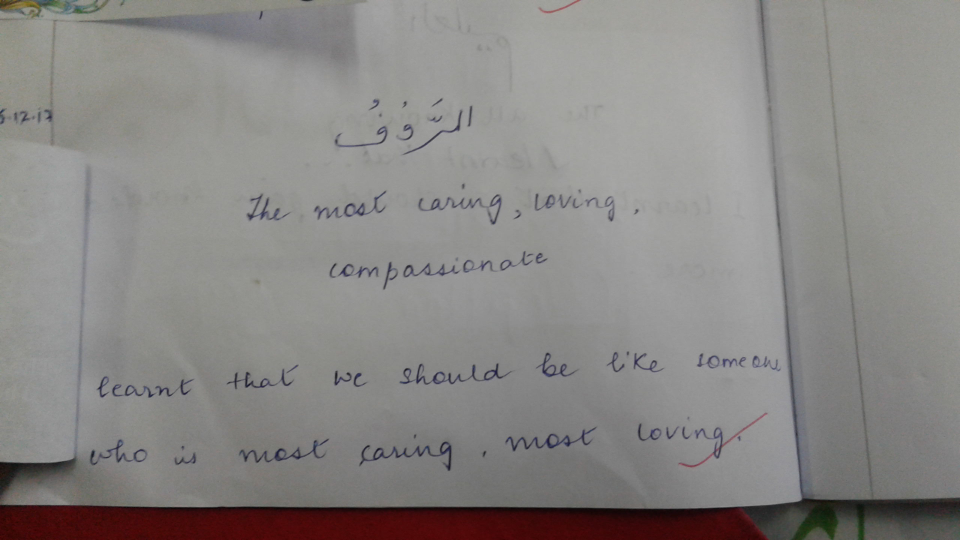 5.12.17
الرَّوُفُ
The most caring, loving,
compassionate
learnt that we should be like someone
who is most caring, most loving.